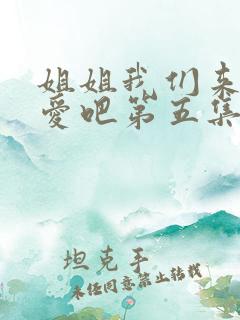 姐姐我们来
爱吧第五集
坦克手
未经同意禁止转载